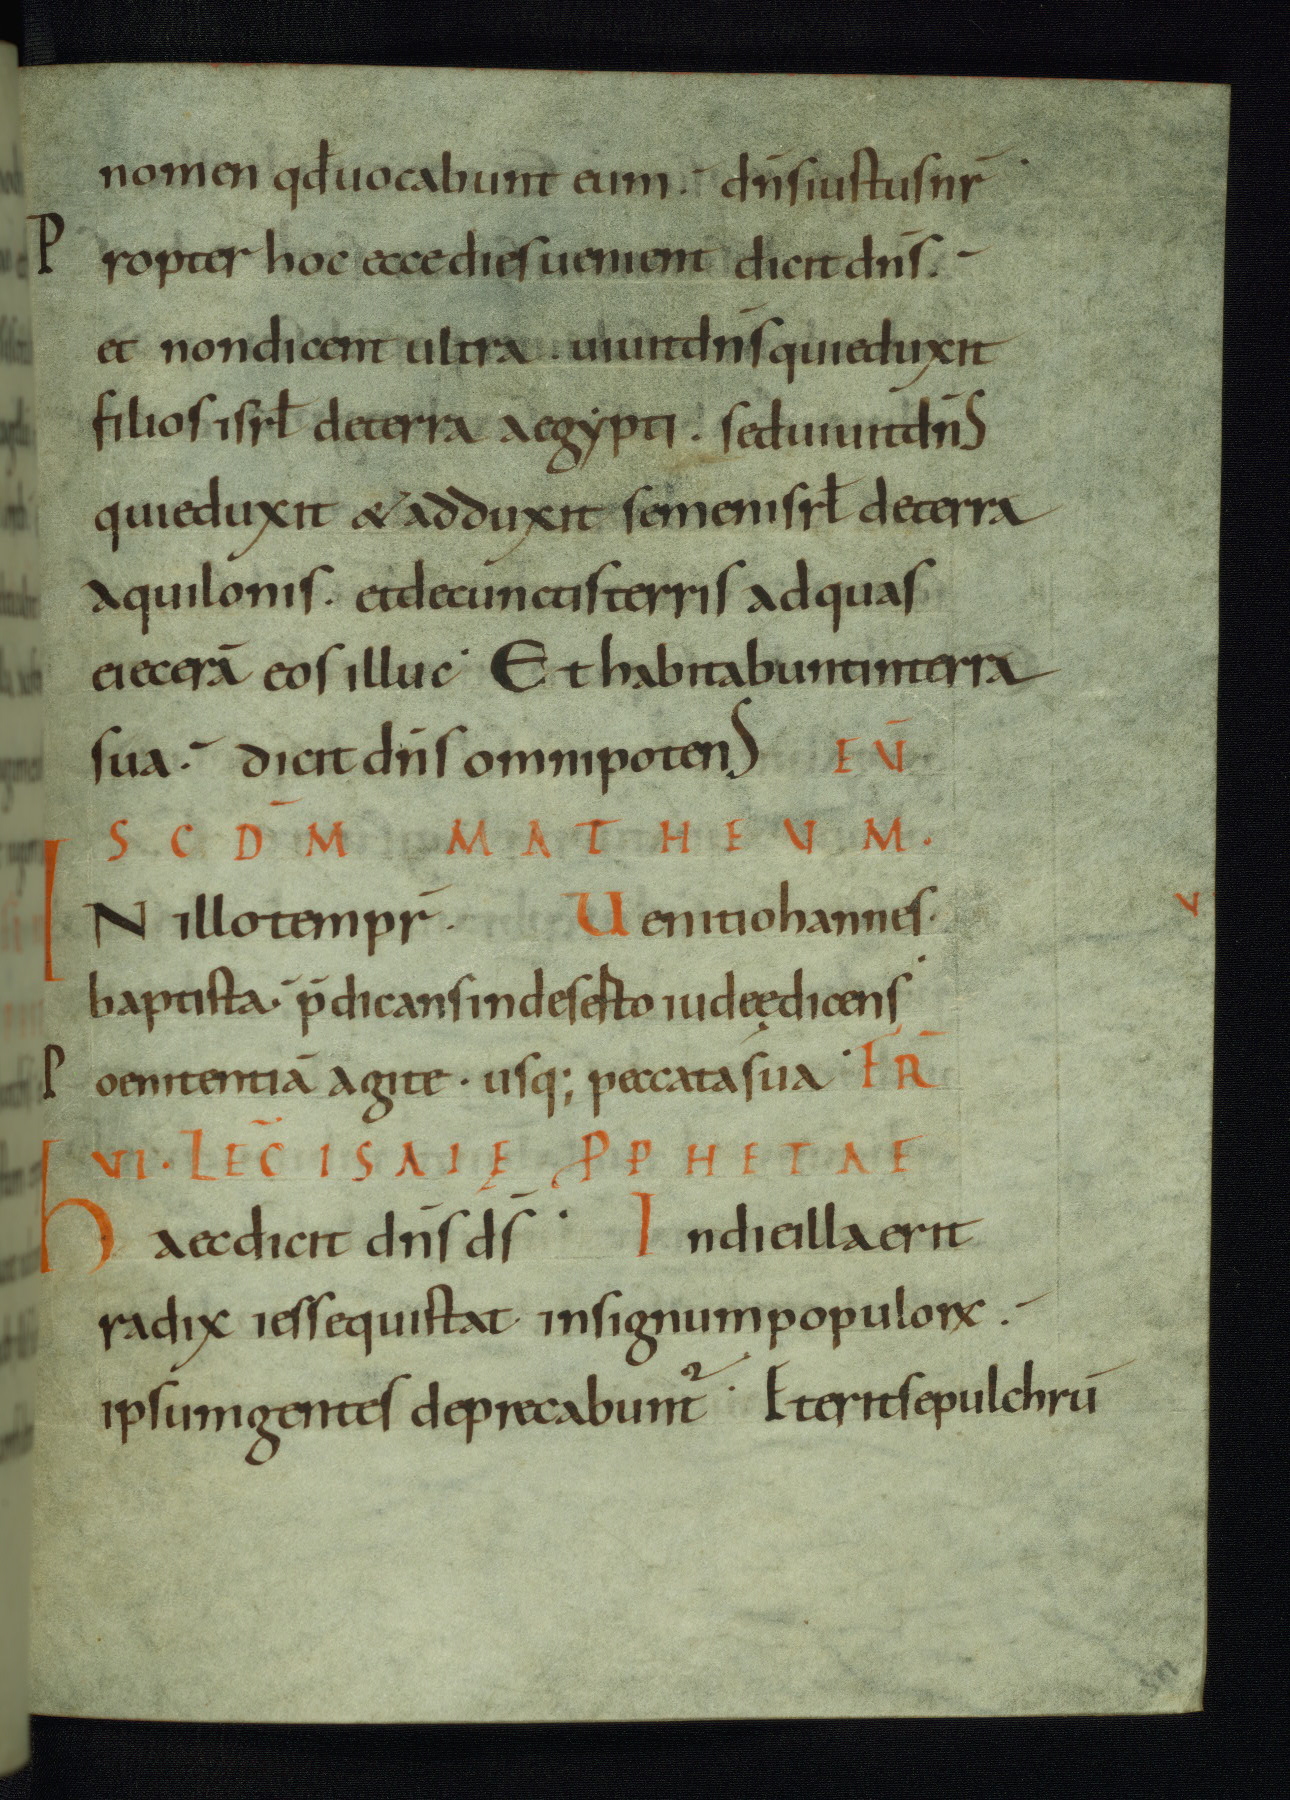 nomen qđ uocabunt eum. dñs iustus nr̄
Propter hoc ecce dies uenient dicit dñs.
et non dicent ultra. uiuit dñs qui eduxit
filios isrł de terra aegẏpti. sed uiuit dñs
qui eduxit & adduxit semen isrł de terra
aquilonis. et de cunctis terris ad quas
eiecerā eos illuc. Et habitabunt in terra
sua. dicit dñs omnipotens EŪ.
SCDM̄ MATHEUM.
IN illo tempr̄. Uenit iohannes.
baptista. p̄dicans in deserto iudeę dicens
Poenitentiā agite. usq; peccata sua. FR̄
VI. LEC̄ ISAIĘ PPHETAE
Haec dicit dñs d̄s. In die illa erit
radix iesse qui stat in signum populoꝝ.
ipsum gentes deprecabunt². Et erit sepulchrū
V